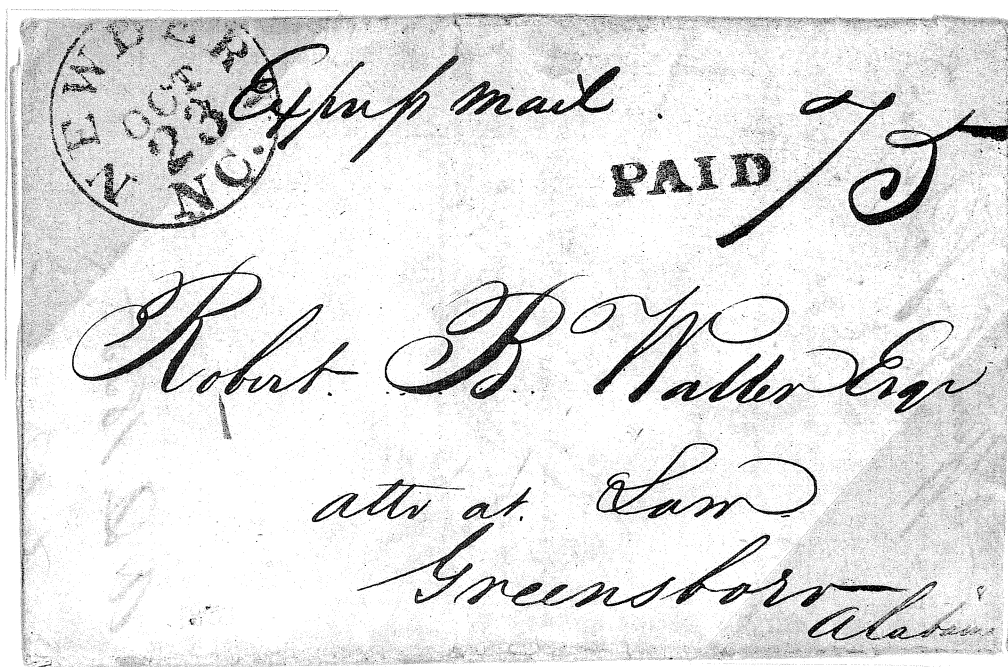 NEWBERN
OCT
23
NC.
Express mail
PAID 75
Robert B Waller Esqr
atto at Law
Greensboro
Alabama